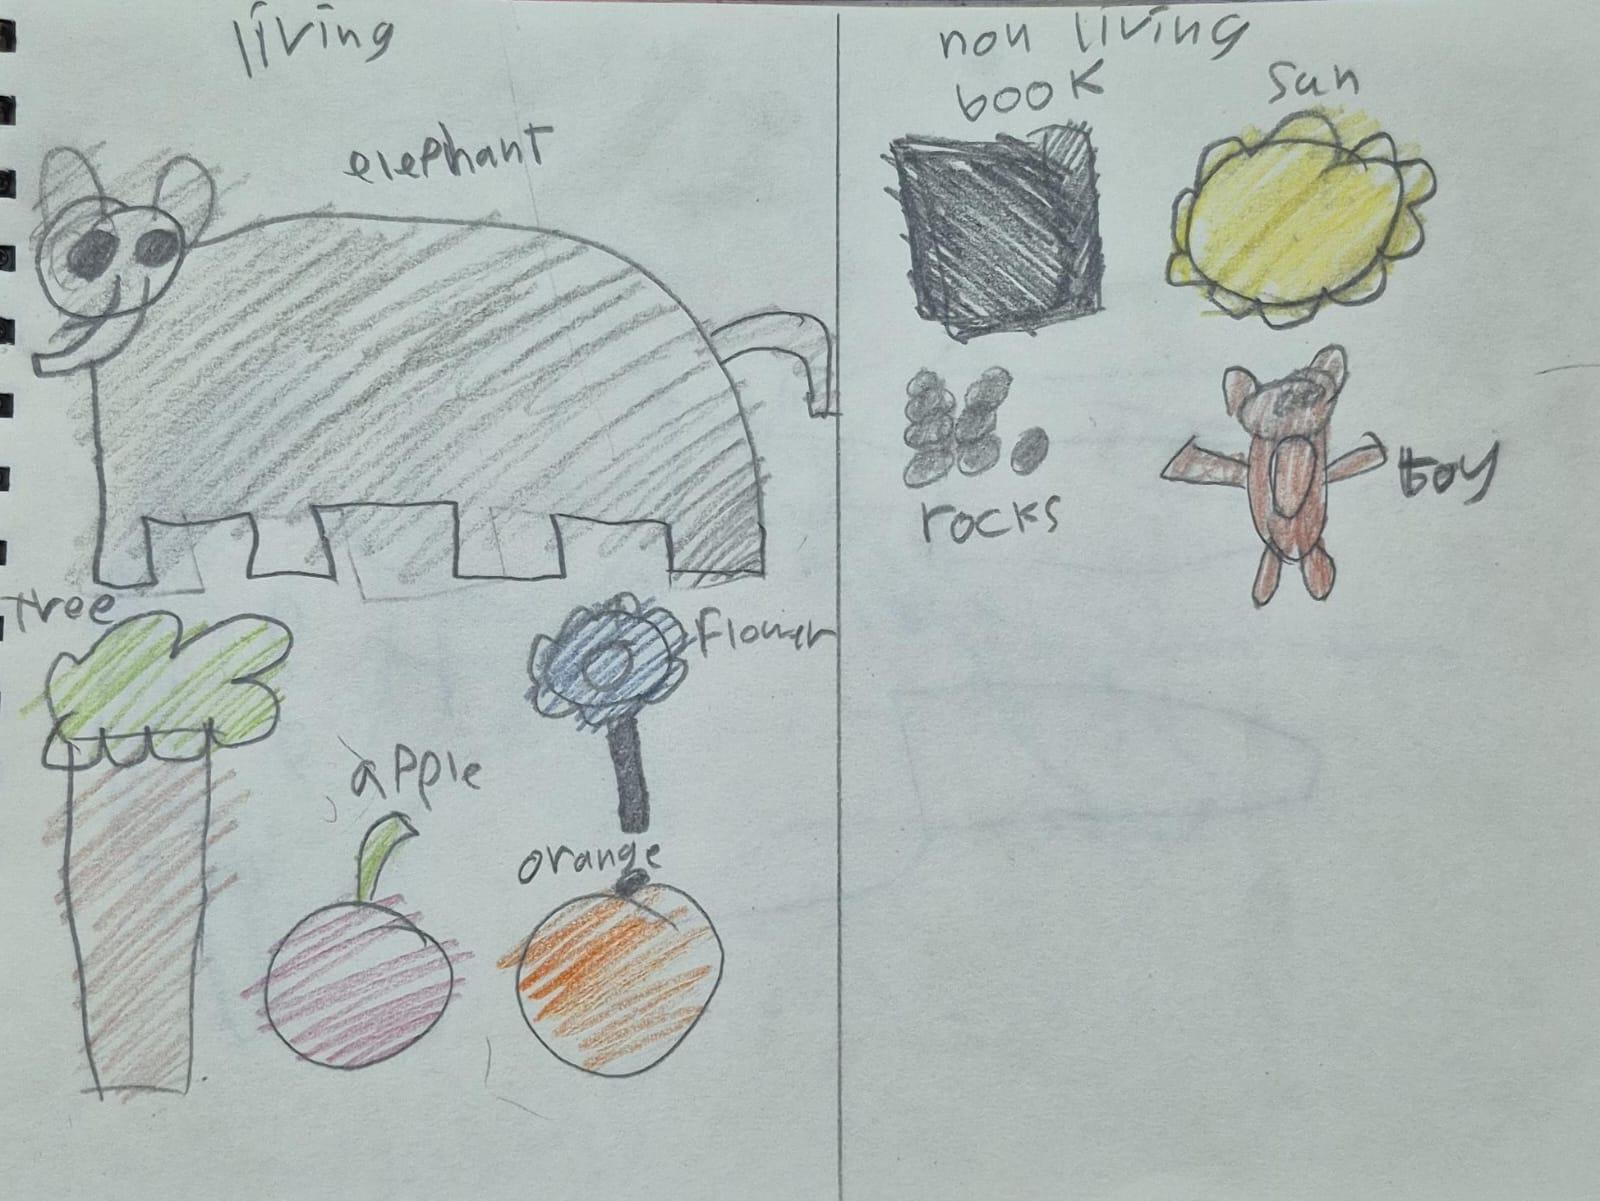 living
elephant
tree
flower
apple
orange
non living
book
sun
rocks
toy